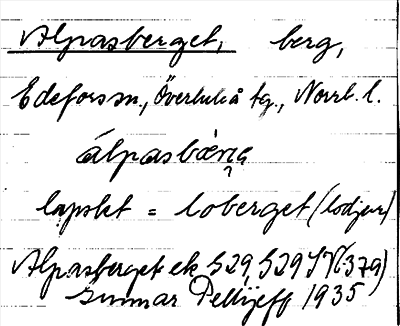 Alpasberget, berg,
Edefors sn., Överluleå tg., Norrb. l.
álpasbærıɛ
lapskt = loberget (lodjur)
Alpasberget ek S29, S29 SV (379)
Gunnar Pellijeff 1935